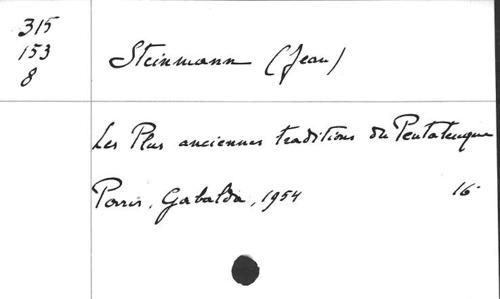 315
153
8
Steinmann (Jean)
Les Plus anciennes traditions du Pentateuque
Paris, Gabalda, 1954 16°